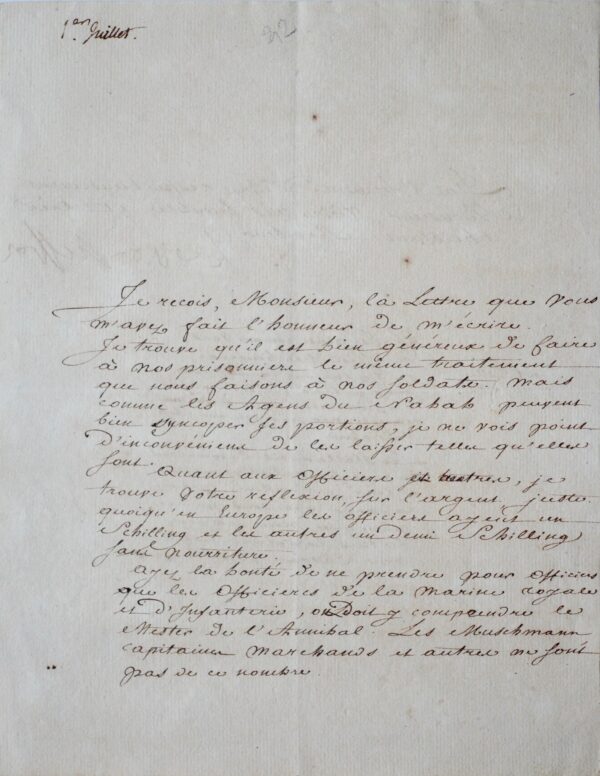 1er Juillet.
22
Je recois, Monsieur, la Lettre que vous
m'avez fait l'honneur de m'écrire.
Je trouve qu'il est bien généreux de faire
à nos prisonniers le même traitement
que nous faisons à nos soldats. Mais
comme les Agens du Nabab peuvent
bien syncoper ses portions, je ne vois point
d'inconvénient de les laisser telles qu'elles
sont.
Quant aux officiers et autres, je
trouve votre reflexion, sur l'argent, juste
quoiqu'en Europe les officiers ayent un
Schilling et les autres un demi Schilling
sans nourriture.
ayez la bonté de ne prendre pour officiers
que les officiers de la marine royale
et d'Infanterie, on Doit y comprendre le
Master de l'Annibal. Les Muschmann
capitaines marchands et autres ne sont
pas de ce nombre.